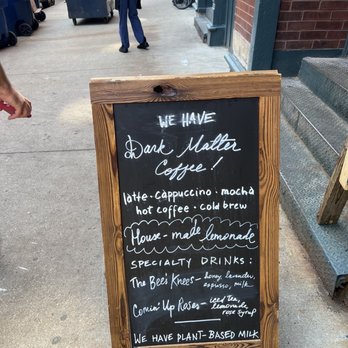 WE HAVE
Dark Matter
Coffee!
latte · cappuccino · mocha
hot coffee · cold brew
House-made lemonade
SPECIALTY DRINKS:
The Bee's Knees - honey, lavender,
espresso, milk
Comin' Up Roses - iced tea,
lemonade,
rose syrup
WE HAVE PLANT-BASED MILK